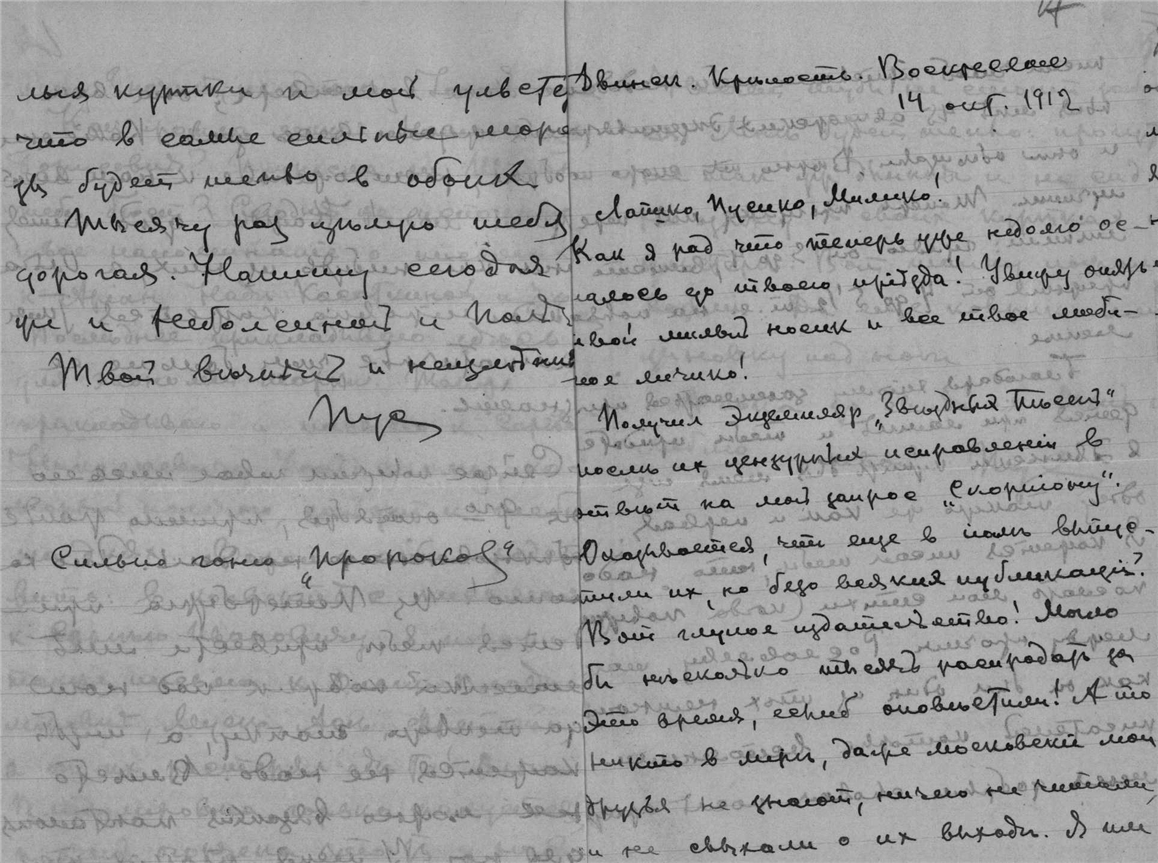 лыя куртки и мой
что в самые сильные моро
зы будет тепло в обоих.
Тысячу раз цѣлую тебя
дорогая. Напишу сегодня
же и
Твой вѣчный и неизмѣнный
Пуся
Сильно гоню „Пророков“
Двинск. Крѣпость. Воскресенье
14 окт. 1912
Пусико, Милико!
Как я рад что теперь уже недолго ос–
талось до твоего приѣзда! Увижу опять
твой милый носик и все твое люби–
мое личико!
Получил экземпляр „Звѣздныя Пѣсни“
послѣ их цензурных исправленій в
отвѣт на мой запрос „Скорпіону“.
Оказывается, что еще в іюлѣ выпус–
тили их, но безо всякия публикаціи?
Вот глупое издательство! Могло
бы нѣсколько тысяч распродать за
это время, если б оповѣстили! А то
никто в мірѣ, даже московскіе мои
друзья не знают, ничего не читали,
и не слыхали о их выходѣ. Я им